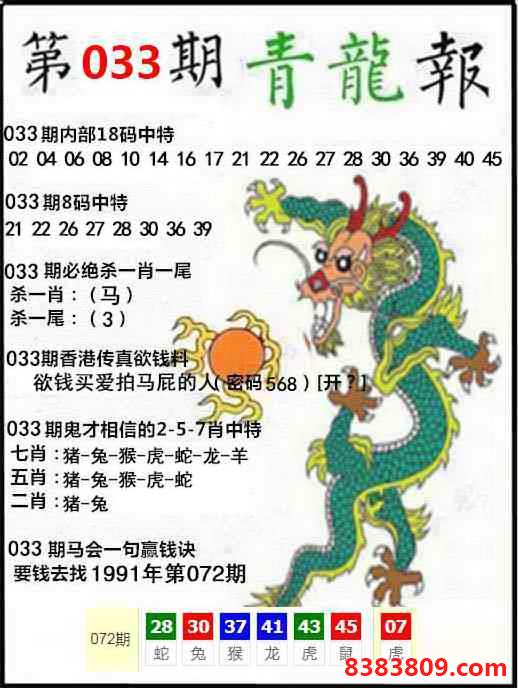 第033期青龍報
033期内部18码中特
02 04 06 08 10 14 16 17 21 22 26 27 28 30 36 39 40 45
033期8码中特
21 22 26 27 28 30 36 39
033期必绝杀一肖一尾
杀一肖：（马）
杀一尾：（3）
033期香港传真欲钱料
欲钱买爱拍马屁的人(密码568)[开？]
033期鬼才相信的2-5-7肖中特
七肖：猪-兔-猴-虎-蛇-龙-羊
五肖：猪-兔-猴-虎-蛇
二肖：猪-兔
033期马会一句赢钱诀
要钱去找1991年第072期
072期 28 30 37 41 43 45 07
蛇 兔 猴 龙 虎 鼠 虎
8383809.com